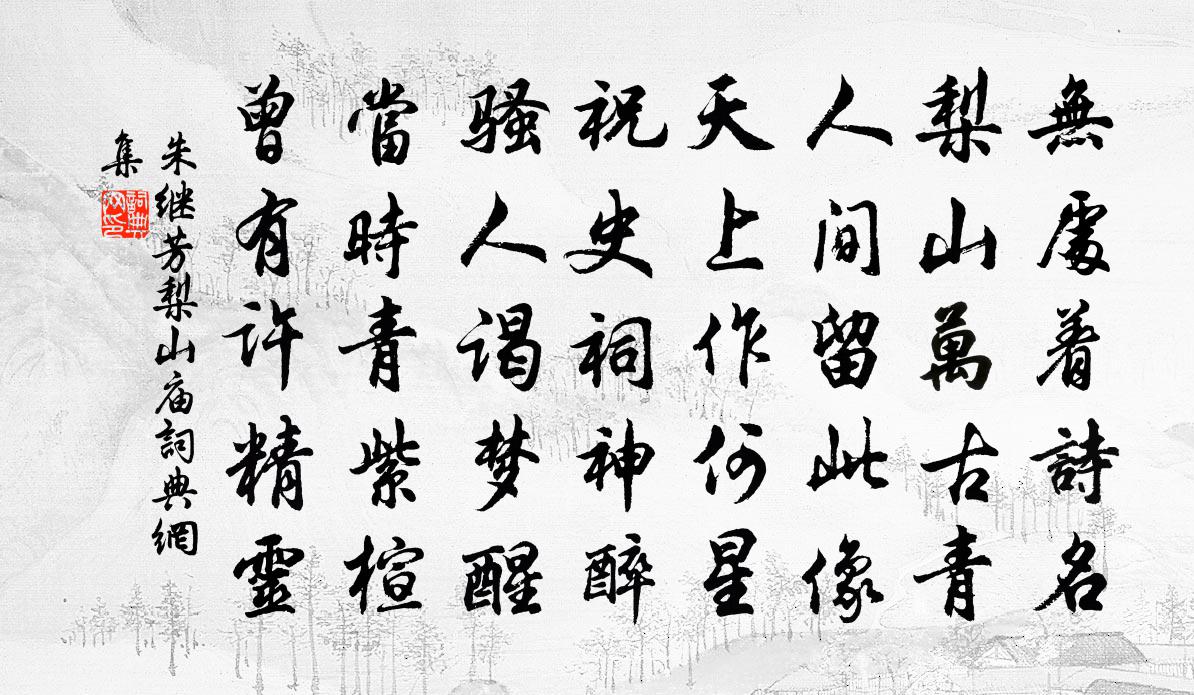 無處着詩名
梨山萬古青
人间留此像
天上作何星
祝史祠神醉
骚人谒梦醒
當時青紫楦
曾有许精靈
朱继芳梨山庙詞典網
集
詞典
网印